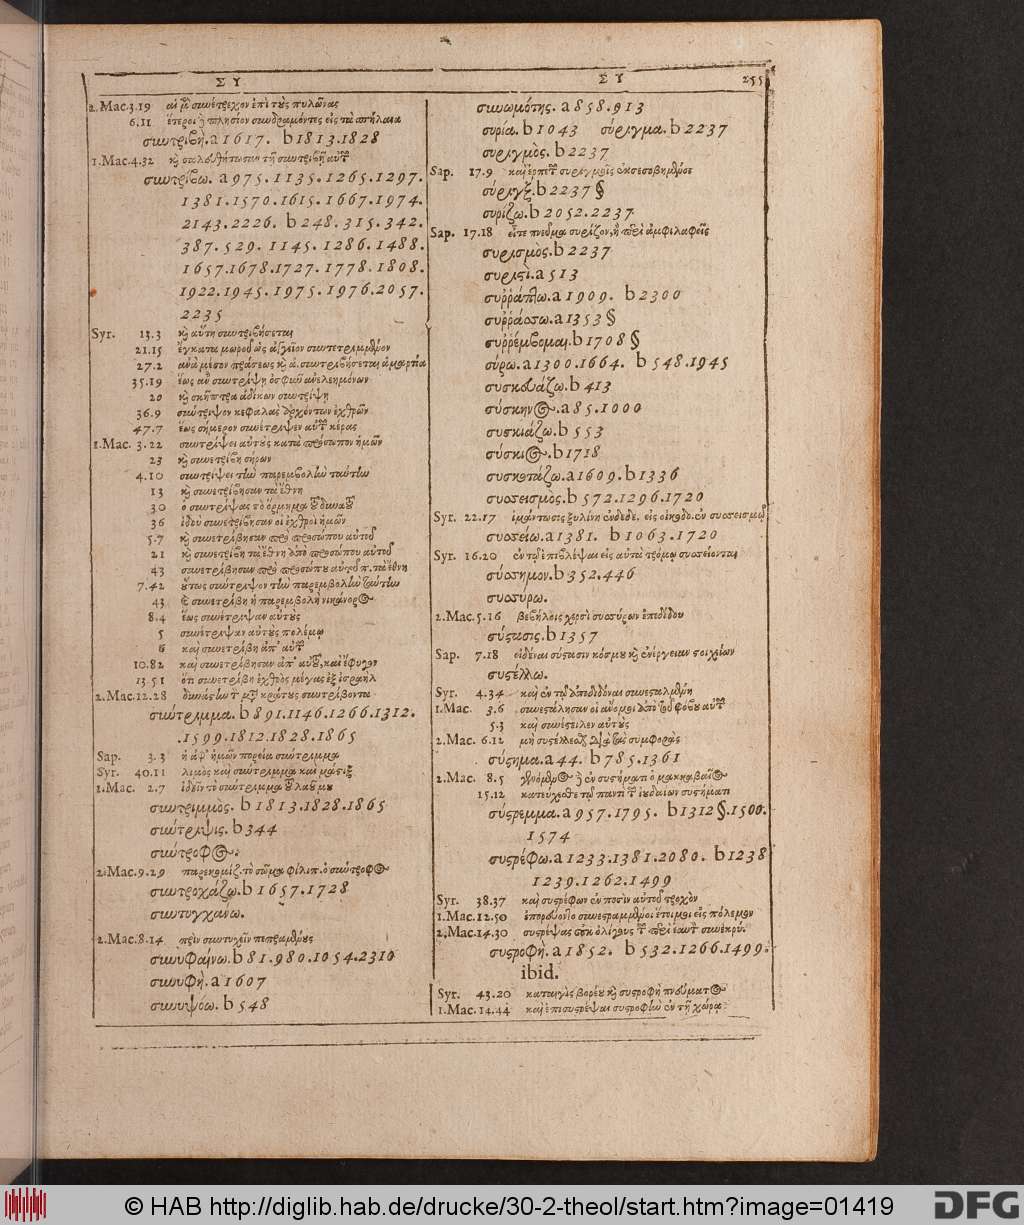 Σ Υ
2.Mac.3.19 αἱ μὲν συνέτρεχον ἐπὶ τοὺς πυλῶνας
6.11 ἕτεροι δὲ πλησίον συνδραμόντες εἰς τὰ σπήλαια
συντριβὴ. a 1617. b 1813.1828
1.Mac.4.32 τῇ συντριβῇ αὐτῶν
συντρίβω. a 975. 1135. 1265. 1297.
1381. 1570. 1615. 1667. 1974.
2143. 2226. b 248. 315. 342.
387. 529. 1145. 1286. 1488.
1657. 1678. 1727. 1778. 1808.
1922. 1945. 1975. 1976. 2057.
2235
Syr. 13.3 καὶ αὕτη συντριβήσεται
21.15 ἔγκατα μωροῦ ὡς ἀγγεῖον συντετριμμένον
27.2 ἀνὰ μέσον πράσεως καὶ ἀ. συντριβήσεται ἁμαρτία
35.19 ἕως ἂν συντρίψῃ ὀσφὺν ἀνελεημόνων
20 καὶ σκῆπτρα ἀδίκων συντρίψῃ
36.9 σύντριψον κεφαλὰς ἀρχόντων ἐχθρῶν
47.7 ἕως σήμερον συνέτριψεν αὐτῶν κέρας
1.Mac. 3.22 συντρίψει αὐτοὺς κατὰ πρόσωπον ἡμῶν
23 καὶ συνετρίβη σήρων
4.10 συντρίψει τὴν παρεμβολὴν ταύτην
13 καὶ συνετρίβησαν τὰ ἔθνη
30 ὁ συντρίψας τὸ ὅρμημα τοῦ δυνατοῦ
36 ἰδοὺ συνετρίβησαν οἱ ἐχθροὶ ἡμῶν
5.7 καὶ συνετρίβησαν πρὸ προσώπου αὐτοῦ
21 καὶ συνετρίβη τὰ ἔθνη ἀπὸ προσώπου αὐτοῦ
43 συνετρίβησαν πρὸ προσώπου αὐτοῦ π. τὰ ἔθνη
7.42 οὕτως σύντριψον τὴν παρεμβολὴν ταύτην
43 καὶ συνετρίβη ἡ παρεμβολὴ νικάνορος
8.4 ἕως συνέτριψαν αὐτοὺς
5 συνέτριψαν αὐτοὺς πολέμῳ
6 καὶ συνετρίβη ἀπ' αὐτῶν
10.82 καὶ συνετρίβησαν ἀπ' αὐτοῦ, καὶ ἔφυγον
13.51 ὅτι συνετρίβη ἐχθρὸς μέγας ἐξ ἰσραὴλ
2.Mac.12.28 κράτους συντρίβοντα
σύντριμμα. b 891. 1146. 1266. 1312.
1599. 1812. 1828. 1865
Sap. 3.3 ἡ ἀφ' ἡμῶν πορεία σύντριμμα
Syr. 40.11 λιμὸς καὶ σύντριμμα καὶ μάστιξ
1.Mac. 2.7 ἰδεῖν τὸ σύντριμμα τοῦ λαοῦ μου
συντριμμὸς. b 1813.1828.1865
σύντριψις. b 344
σύντροφος.
2.Mac.9.29 παρεκομίζ. τὸ σῶμα φίλιπ. ὁ σύντροφος
συντροχάζω. b 1657.1728
συντυγχάνω.
2.Mac.8.14 πρὶν συντυχεῖν πεπραμένους
συνυφαίνω. b 81.980.1054.2310
συνυφὴ. a 1607
συνυψόω. b 548
Σ Υ 255
συνωμότης. a 858. 913
συρία. b 1043 σύριγμα. b 2237
συριγμὸς. b 2237
Sap. 17.9 καὶ ἑρπετῶν συριγμοῖς ἐκσεσοβημένοι
σύριγξ. b 2237 §
συρίζω. b 2052.2237
Sap. 17.18 εἴτε πνεῦμα συρίζον, ἢ περὶ ἀμφιλαφεῖς
συρισμὸς. b 2237
συριστὶ. a 513
συῤῥάπτω. a 1909. b 2300
συῤῥάσσω. a 1353 §
συῤῥέμβομαι. b 1708 §
σύρω. a 1300.1664. b 548.1945
συσκευάζω. b 413
σύσκηνος. a 85.1000
συσκιάζω. b 553
σύσκιος. b 1718
συσκοτάζω. a 1609. b 1336
συσσεισμὸς. b 572.1296.1720
Syr. 22.17 ἱμάντωσις ξυλίνη ἐνδεδε. εἰς οἰκοδο. ἐν συσσεισμῷ
συσσείω. a 1381. b 1063.1720
Syr. 16.20 ἐν τῷ ἐπιβλέψαι εἰς αὐτὰ τρόμῳ συσσείονται
σύσσημον. b 352.446
συσσύρω.
2.Mac.5.16 βεβήλοις χερσὶ συσσύρων ἐπεδίδου
σύστασις. b 1357
Sap. 7.18 εἰδέναι σύστασιν κόσμου καὶ ἐνέργειαν στοιχείων
συστέλλω.
Syr. 4.34 καὶ ἐν τῷ ἀποδιδόναι συνεσταλμένη
1.Mac. 3.6 συνεστάλησαν οἱ ἄνομοι ἀπὸ τοῦ φόβου αὐτοῦ
5.3 καὶ συνέστειλεν αὐτοὺς
2.Mac. 6.12 μὴ συστέλλεσθαι διὰ τὰς συμφορὰς
σύστημα. a 44. b 785.1361
2.Mac. 8.5 γενόμενος δὲ ἐν συστήματι ὁ μακκαβαῖος
15.12 κατεύχεσθαι τῷ παντὶ τῶν ἰουδαίων συστήματι
σύστρεμμα. a 957.1795. b 1312 §. 1500.
1574
συστρέφω. a 1233.1381.2080. b 1238
1239.1262.1499
Syr. 38.37 καὶ συστρέφων ἐν ποσὶν αὐτοῦ τροχὸν
1.Mac.12.50 ἐπορεύοντο συνεστραμμένοι ἕτοιμοι εἰς πόλεμον
2.Mac.14.30 συστρέψας οὐκ ὀλίγους τῶν περὶ ἑαυτὸν συνεκρύ.
συστροφὴ. a 1852. b 532.1266.1499.
ibid.
Syr. 43.20 καταιγὶς βορέου καὶ συστροφὴ πνεύματος
1.Mac.14.44 καὶ ἐπισυστρέψαι συστροφὴν ἐν τῇ χώρᾳ
© HAB http://diglib.hab.de/drucke/30-2-theol/start.htm?image=01419
DFG